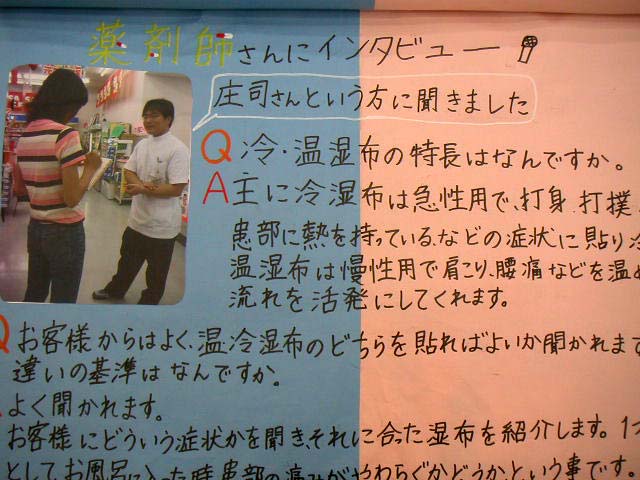 薬剤師さんにインタビュー
庄司さんという方に聞きました
Q 冷・温湿布の特長はなんですか。
A 主に冷湿布は急性用で、打身、打撲、
患部に熱を持っている、などの症状に貼り冷
温湿布は慢性用で肩こり、腰痛などを温め
流れを活発にしてくれます。
Q お客様からはよく、温冷湿布のどちらを貼ればよいか聞かれま
違いの基準はなんですか。
よく聞かれます。
お客様にどういう症状かを聞き、それに合った湿布を紹介します。1つ
としてお風呂に入った時患部の痛みがやわらぐかどうかという事です。